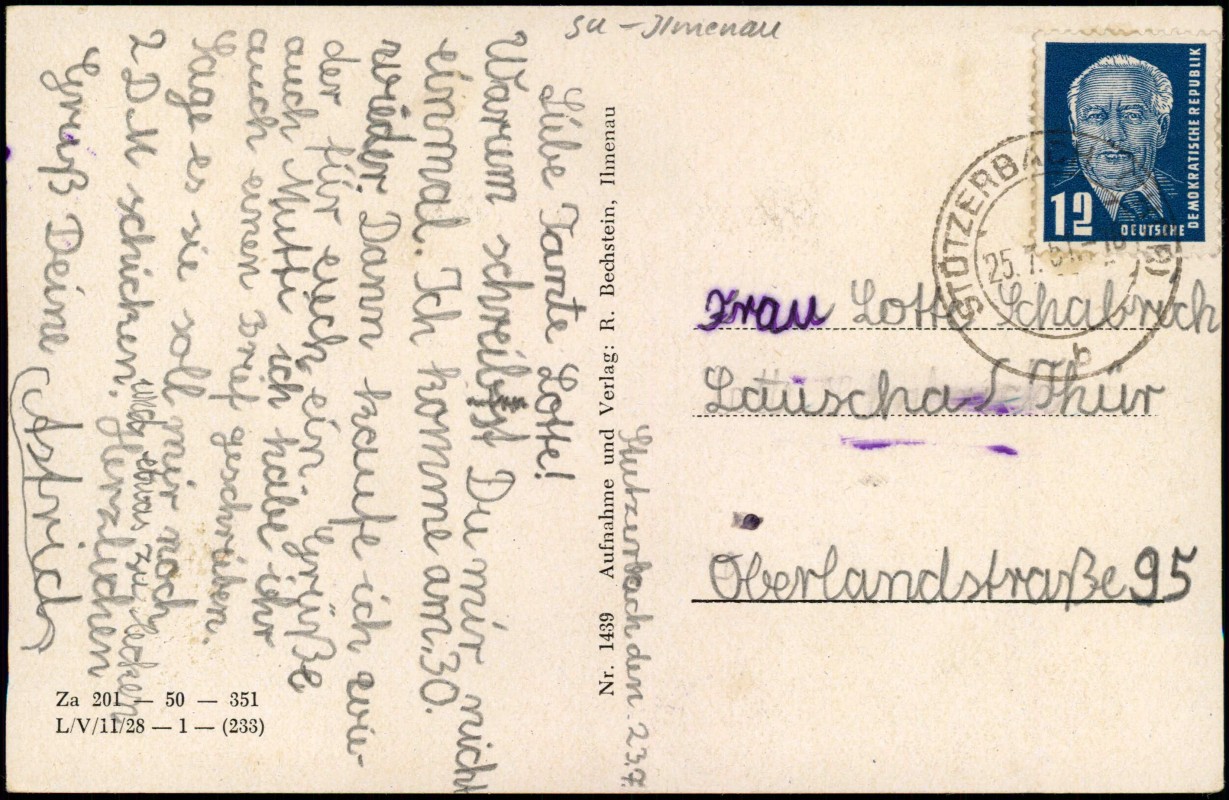 su - Ilmenau
Stutzerbach den 23.7.
Liebe Tante Lotte!
Warum schreibst Du mir nicht
einmal. Ich komme am. 30.
wieder. Dann kaufe ich wie-
der für euch ein. Grüße
auch Mutti ich habe ihr
auch einen Brief geschrieben.
Sage es sie soll mir noch
2 DM schicken. und etwas zu lecken
Herzlichen
Gruß Deine
Astrid
Za 201 — 50 — 351
L/V/11/28 — 1 — (233)
Nr. 1439 Aufnahme und Verlag: R. Bechstein, Ilmenau
12
DEUTSCHE
DEMOKRATISCHE REPUBLIK
STÜTZERBACH
25.7.51
b
Frau Lotte Schabrich
Lauscha / Thür
Oberlandstraße 95